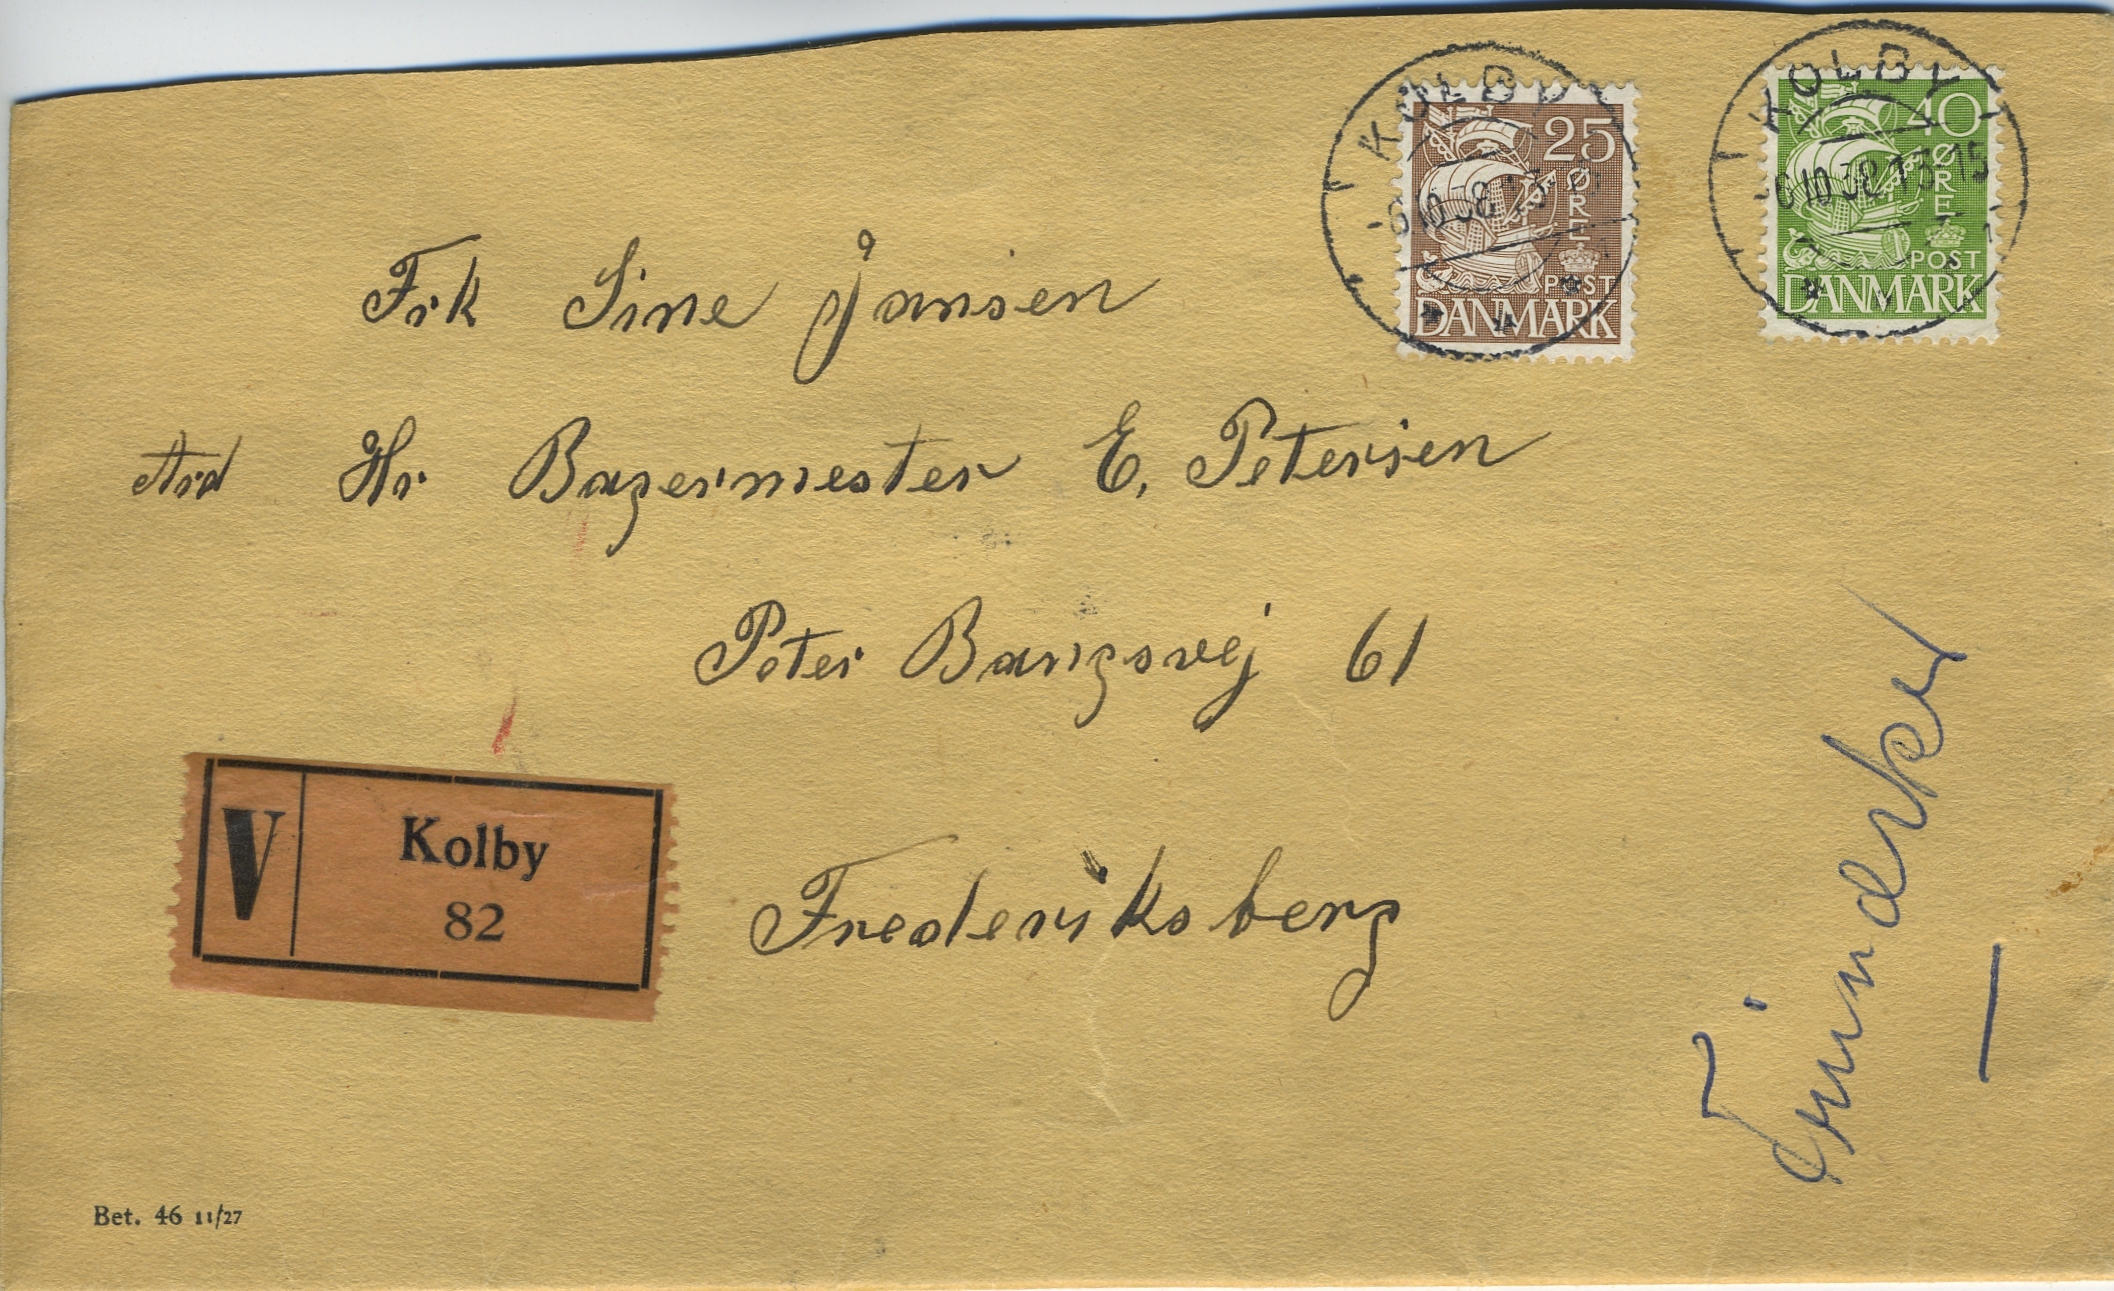 KOLBY
-8.10.38.13-15
25
ØRE
POST
DANMARK
KOLBY
-8.10.38.13-15
40
ØRE
POST
DANMARK
Frk Sine Jansen
Adr Hr Bagermester E. Petersen
Peter Bangsvej 61
Frederiksberg
V
Kolby
82
Frimærker
Bet. 46 11/27